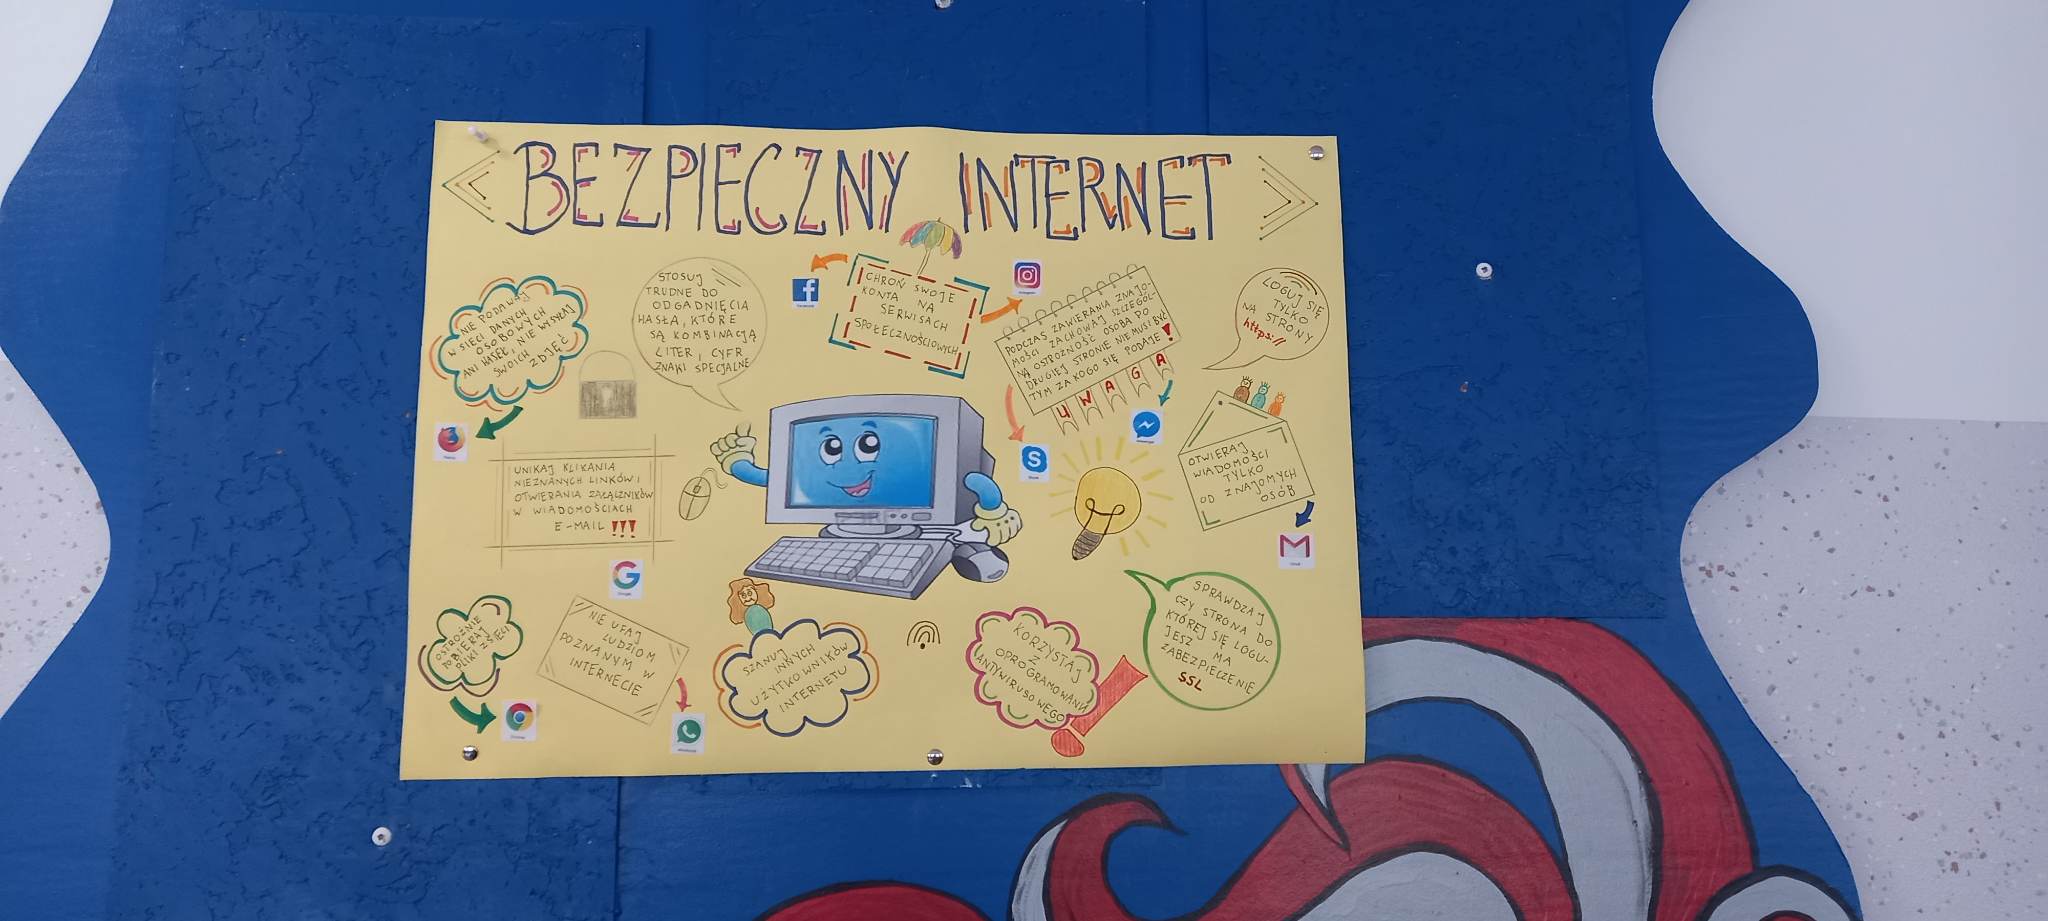 BEZPIECZNY INTERNET
NIE PODAWAJ
W SIECI DANYCH
OSOBOWYCH
ANI HASEŁ, NIE WYSYŁAJ
SWOICH ZDJĘĆ
STOSUJ
TRUDNE DO
ODGADNIĘCIA
HASŁA, KTÓRE
SĄ KOMBINACJĄ
LITER, CYFR
ZNAKI SPECJALNE
CHROŃ SWOJE
KONTA NA
SERWISACH
SPOŁECZNOŚCIOWYCH
PODCZAS ZAWIERANIA ZNAJO-
MOŚCI ZACHOWAJ SZCZEGÓL-
NĄ OSTROŻNOŚĆ OSOBA PO
DRUGIEJ STRONIE NIE MUSI BYĆ
TYM ZA KOGO SIĘ PODAJE!
UWAGA
LOGUJ SIĘ
TYLKO
NA STRONY
https://
UNIKAJ KLIKANIA
NIEZNANYCH LINKÓW I
OTWIERANIA ZAŁĄCZNIKÓW
W WIADOMOŚCIACH
E-MAIL !!!
OTWIERAJ
WIADOMOŚCI
TYLKO
OD ZNAJOMYCH
OSÓB
OSTROŻNIE
POBIERAJ
PLIKI Z SIECI
NIE UFAJ
LUDZIOM
POZNANYM W
INTERNECIE
SZANUJ
INNYCH
UŻYTKOWNIKÓW
INTERNETU
KORZYSTAJ
Z
OPROGRAMOWANIA
ANTYWIRUSOWEGO
SPRAWDZAJ
CZY STRONA DO
KTÓREJ SIĘ LOGU-
JESZ MA
ZABEZPIECZENIE
SSL